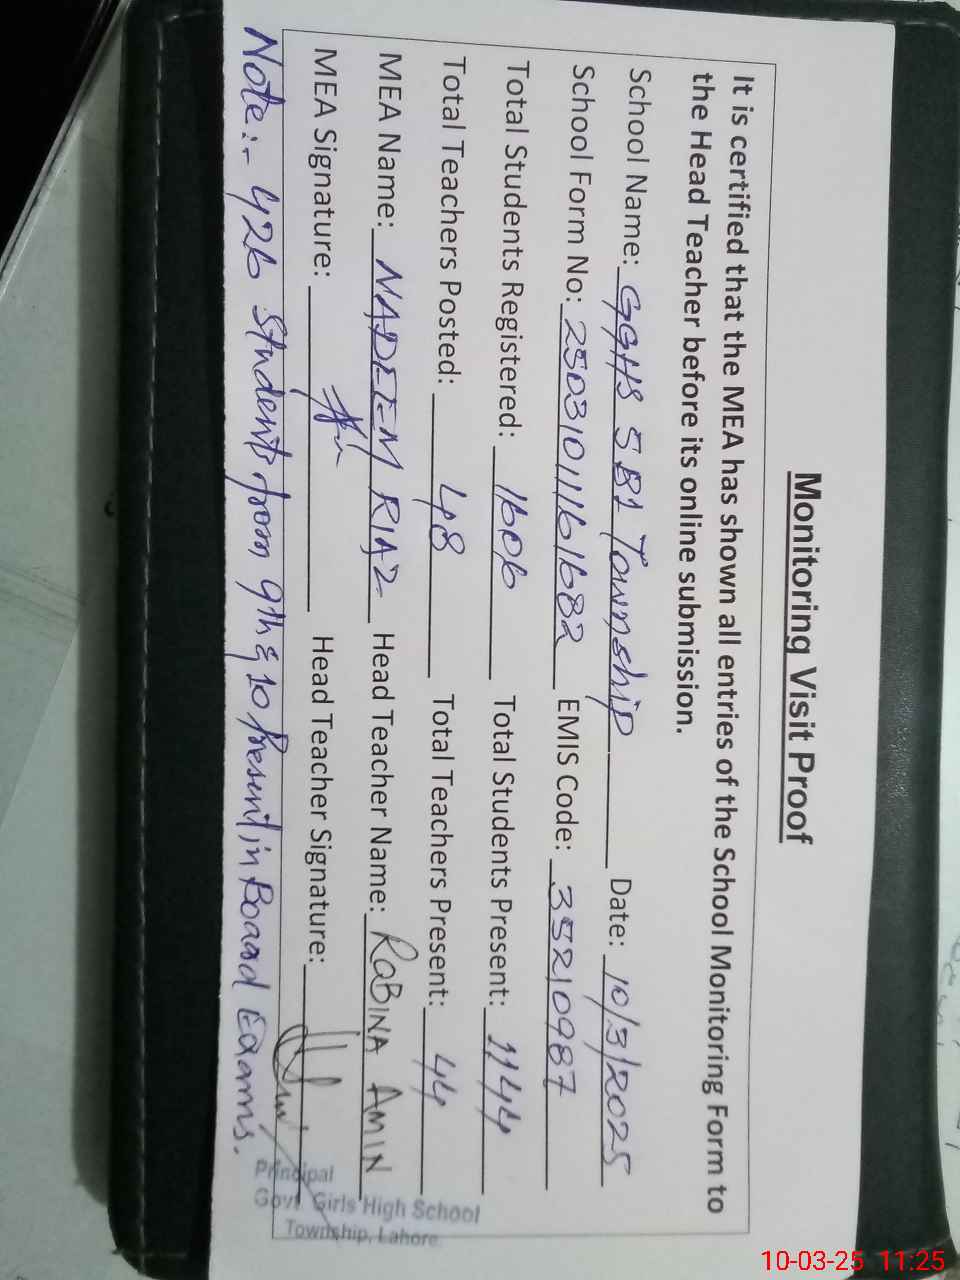 Monitoring Visit Proof
It is certified that the MEA has shown all entries of the School Monitoring Form to
the Head Teacher before its online submission.
School Name: GGHS 5 B1 Township Date: 10/3/2025
School Form No: 25031011161682 EMIS Code: 35210987
Total Students Registered: 1606 Total Students Present: 1144
Total Teachers Posted: 48 Total Teachers Present: 44
MEA Name: NADEEM RIAZ Head Teacher Name: RoBINA AMIN
MEA Signature: Head Teacher Signature:
Note:- 426 students from 9th & 10 Present in Board Exams.
Principal
Govt. Girls High School
Township, Lahore
10-03-25 11:25